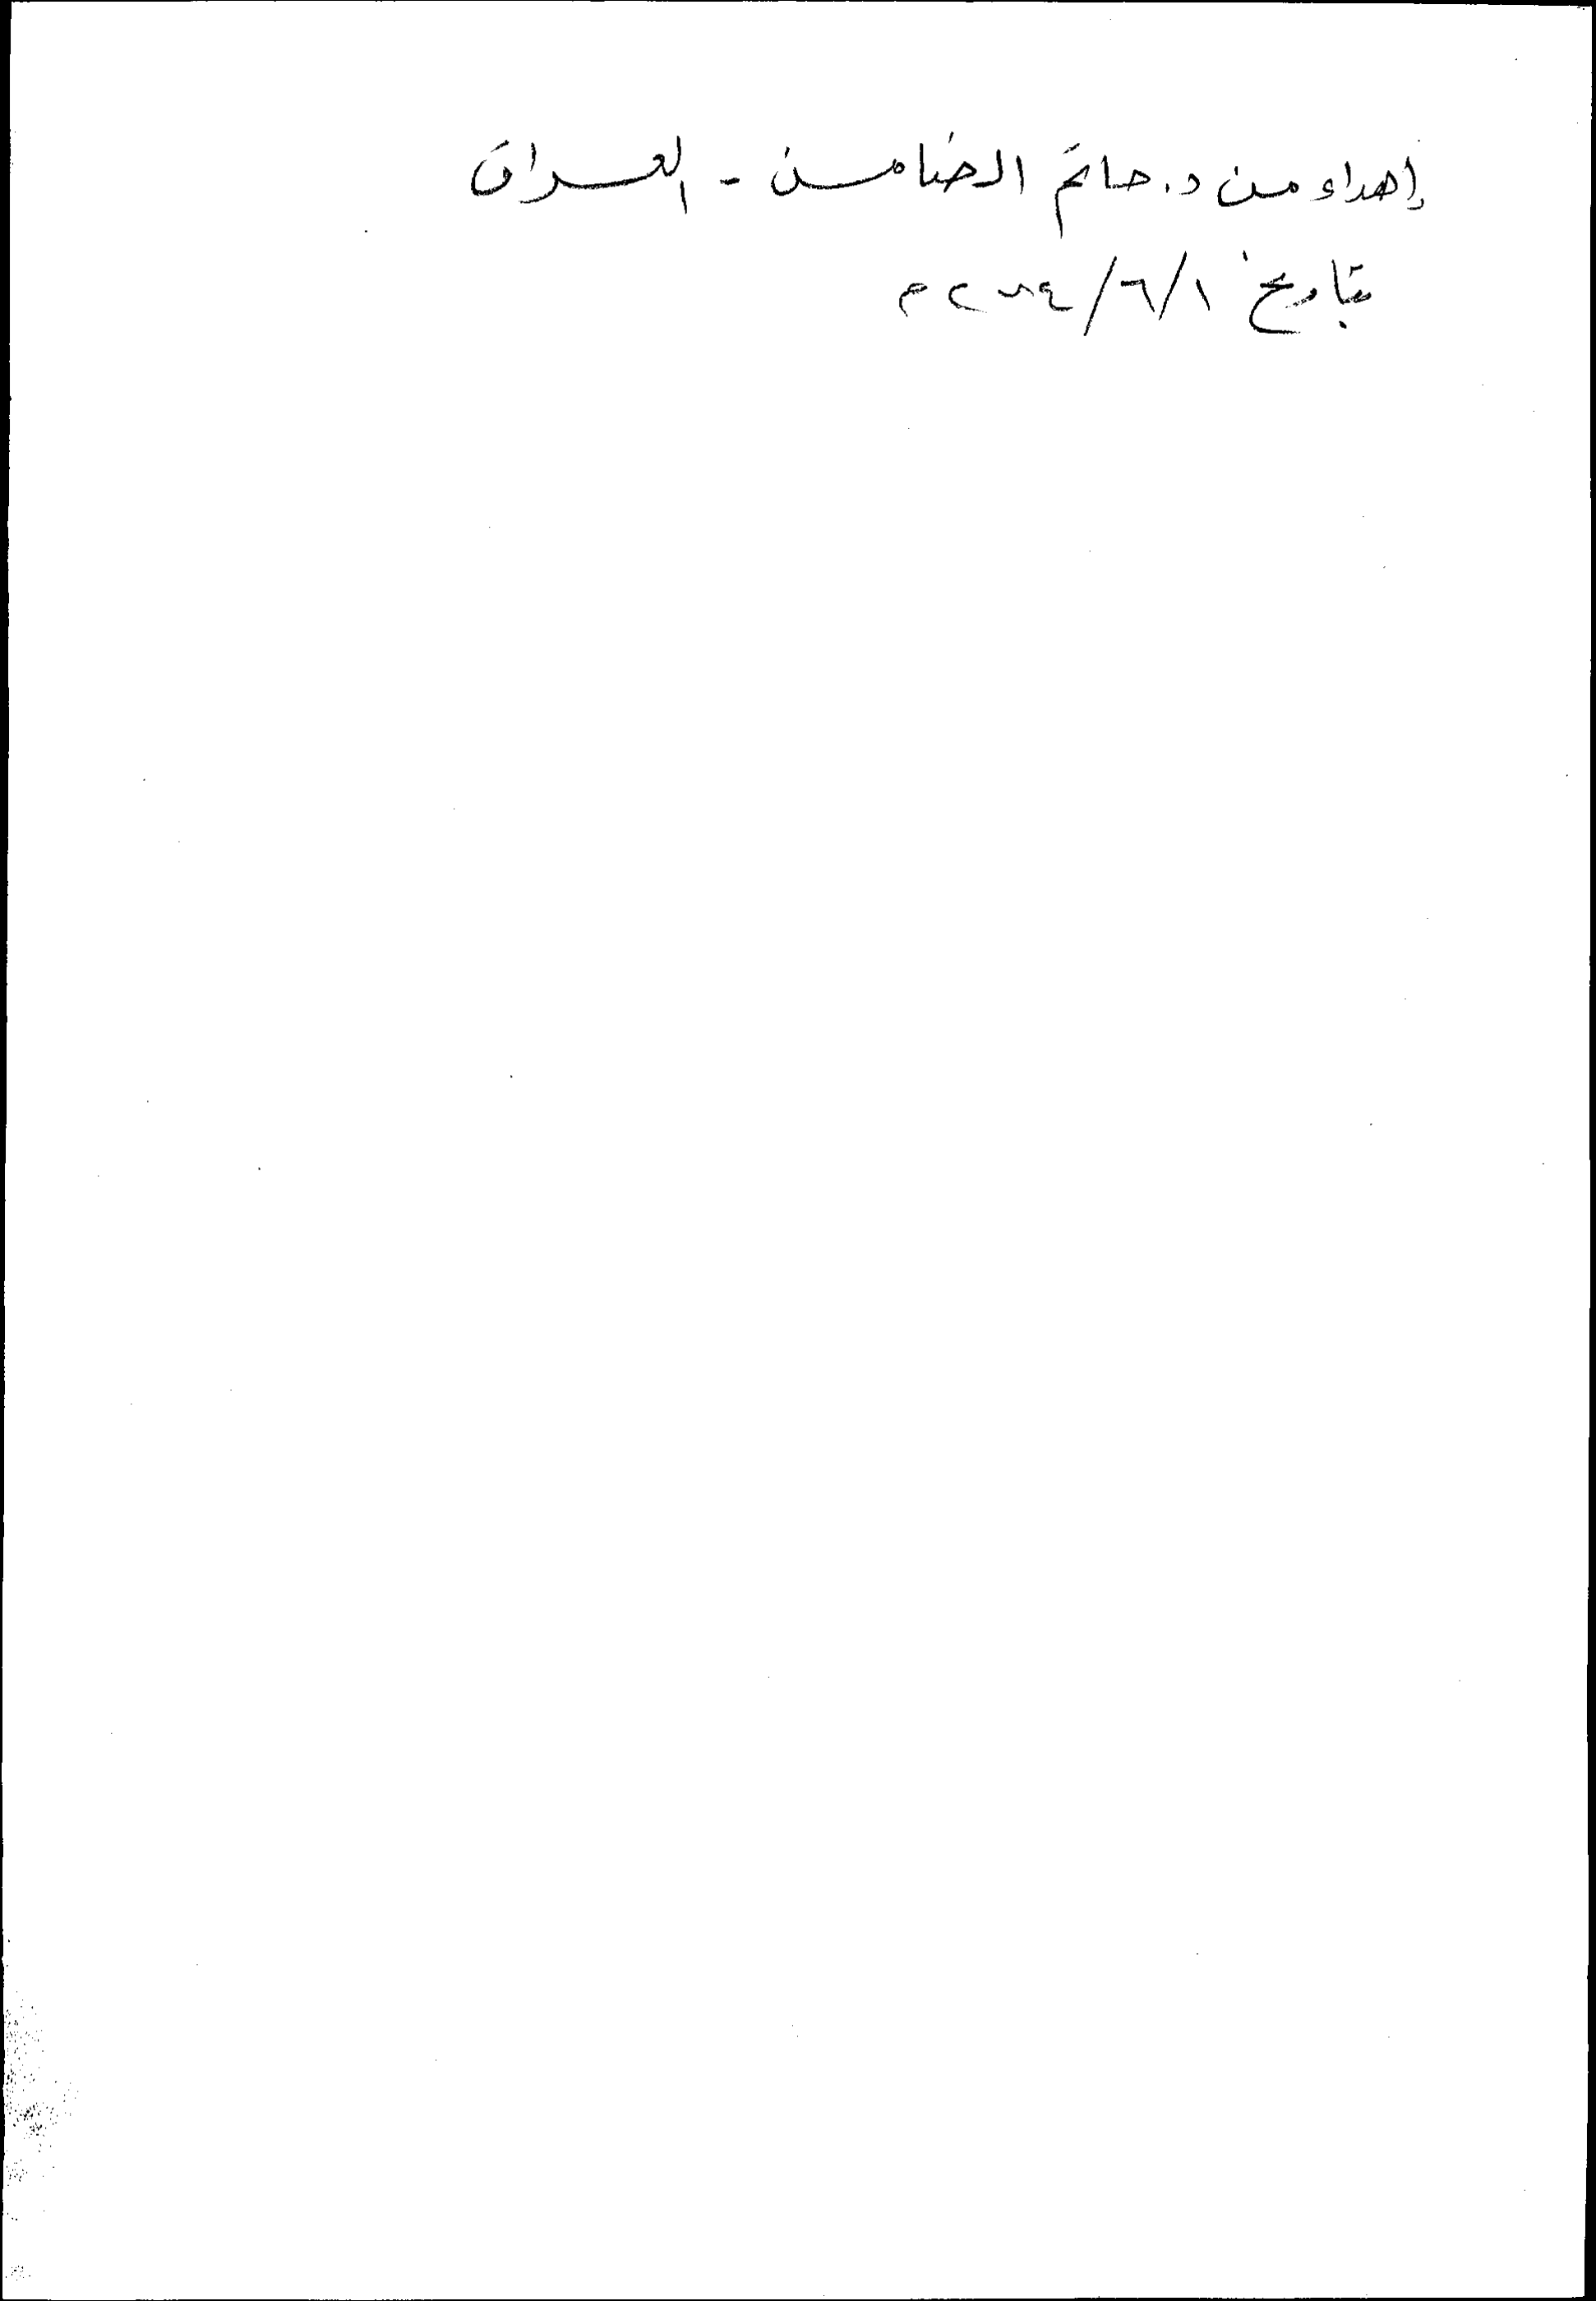 إهداء من د. حاتم الضامن - العراق
بتاريخ ١/٦/٢٠٠٤م